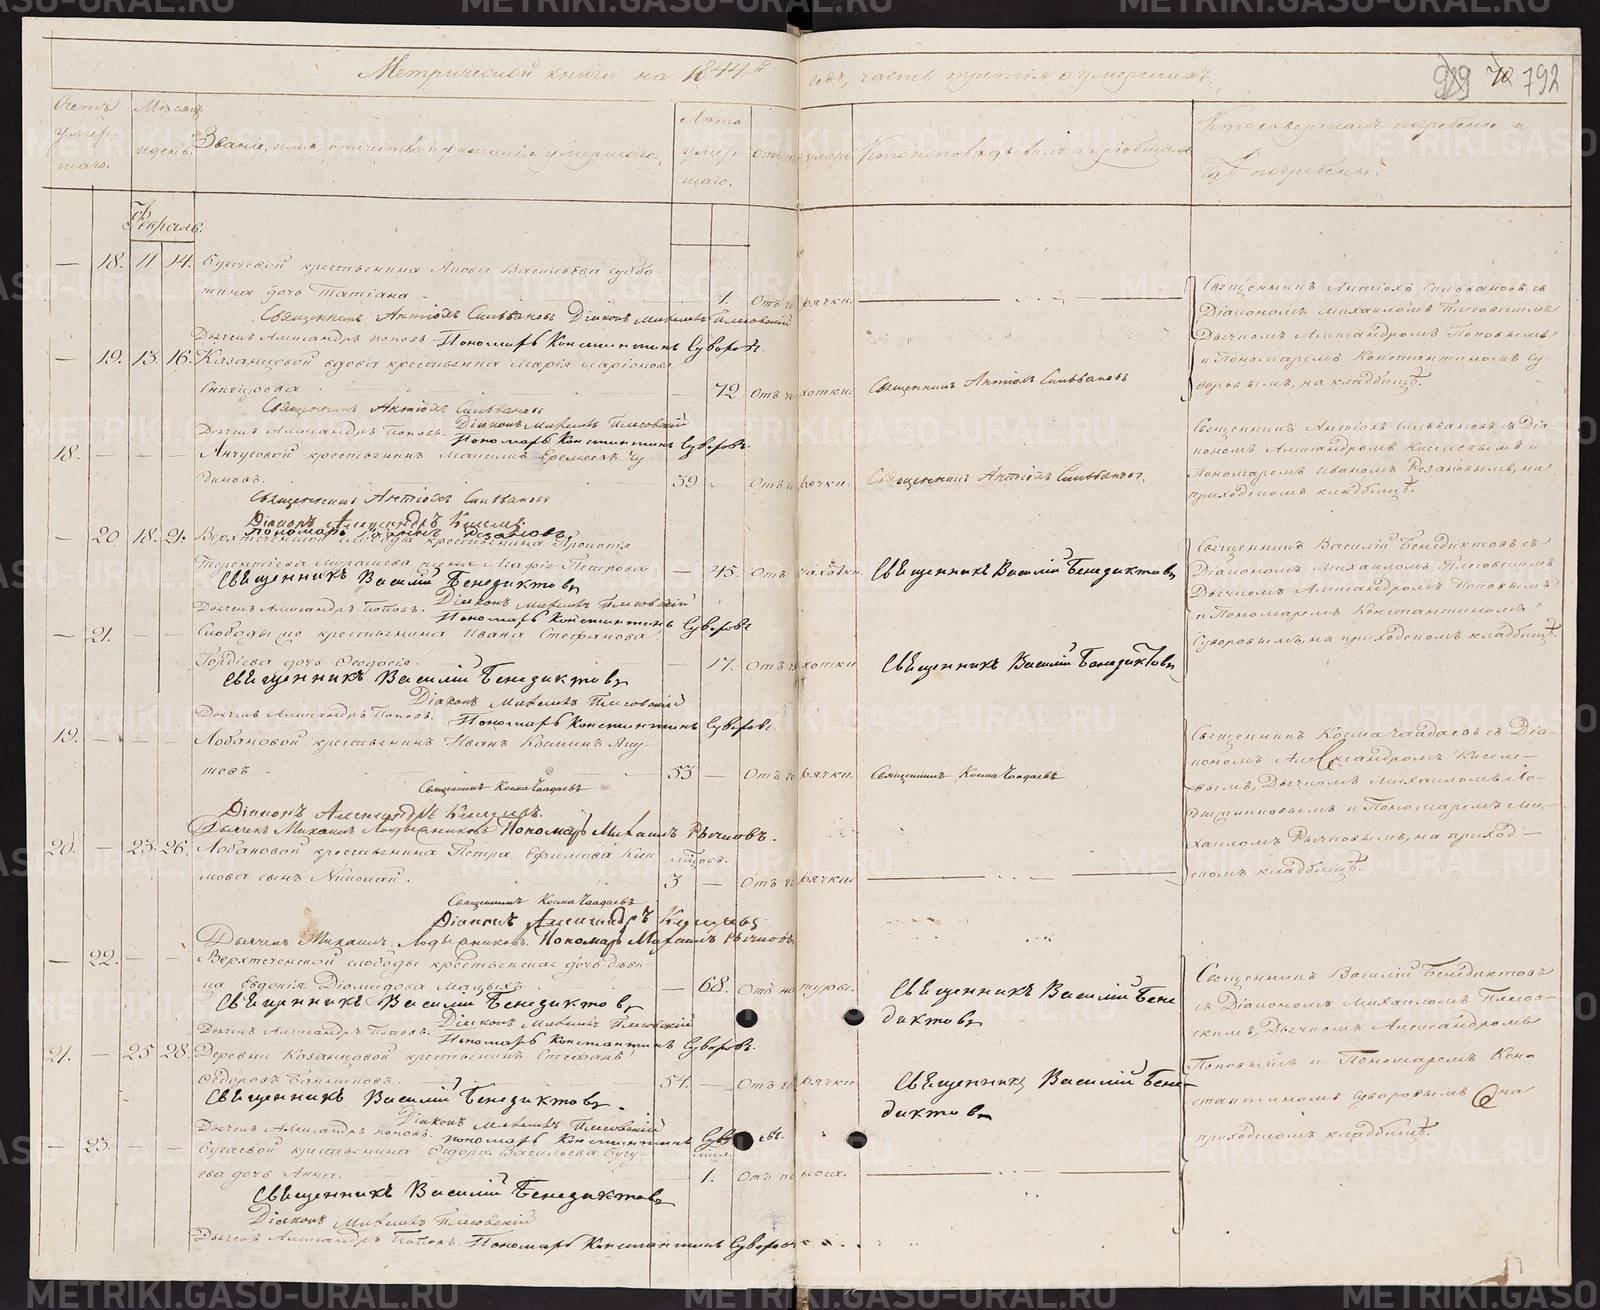 Метрической книги на 1844й годъ, часть третія о умершихъ.
929 70 792
Счетъ умер- шаго.
Мѣсяцъ и день.
Званіе, имя, отечество и фамилія умершаго.
Лѣта умер- шаго.
Отъ чего умеръ
Кто исповѣдывалъ и пріобщалъ
Кто совершалъ погребеніе и
гдѣ погребены.
Февраль.
— 18. 11 14. крестьянина Якова Васильева Суббо-
тина дочь Татіана 1. Отъ горячки.
Священникъ Антіохъ Сильвановъ Діаконъ Михаилъ Плесовскій
Дьячекъ Александръ Поповъ. Пономарь Константинъ Суворовъ.
Священникъ Антіохъ Сильвановъ съ
Діакономъ Михаиломъ Плесовскимъ
Дьячкомъ Александромъ Поповымъ
и Пономаремъ Константиномъ Су-
воровымъ, на кладбищѣ.
— 19. 13. 16. Казанцовой вдова крестьянка Марія Ларіонова
72. Отъ чахотки. Священникъ Антіохъ Сильвановъ
Священникъ Антіохъ Сильвановъ
Дьячекъ Александръ Поповъ. Діаконъ Михаилъ Плесовскій
Пономарь Константинъ Суворовъ.
18. — — — крестьянинъ Максимъ Еремеевъ Чу-
диновъ. 39 - Отъ горячки. Священникъ Антіохъ Сильвановъ.
Священникъ Антіохъ Сильвановъ
Діаконъ Александръ Киселевъ.
Пономарь Иванъ
Священникъ Антіохъ Сильвановъ съ Діа-
кономъ Александромъ Киселевымъ и
Пономаремъ Иваномъ на
приходскомъ кладбищѣ.
— 20 18. 21. Верхтеченской слободы крестьянина Прокопія
Терентіева жена Агафія Петрова. — 45. Отъ чахотки. Священникъ Василій Бенедиктовъ
Священникъ Василій Бенедиктовъ
Дьячекъ Александръ Поповъ. Діаконъ Михаилъ Плесовскій
Пономарь Константинъ Суворовъ
Священникъ Василій Бенедиктовъ съ
Діакономъ Михаиломъ Плесовскимъ
Дьячкомъ Александромъ Поповымъ
и Пономаремъ Константиномъ
Суворовымъ, на приходскомъ кладбищѣ.
— 21. — — Слободы крестьянина Ивана Стефанова
Гордіева дочь Феодосія. — 17. Отъ чахотки Священникъ Василій Бенедиктовъ
Священникъ Василій Бенедиктовъ
Діаконъ Михаилъ Плесовскій
Дьячекъ Александръ Поповъ. Пономарь Константинъ Суворовъ.
19. — — — Лобановой крестьянинъ Иванъ
53 — Отъ горячки. Священникъ Косма Чаадаевъ
Священникъ Косма Чаадаевъ
Діаконъ Александръ Киселевъ.
Дьячекъ Михаилъ Пономарь Михаилъ Рычковъ.
Священникъ Косма Чаадаевъ съ Діа-
кономъ Александромъ Киселе-
вымъ, Дьячкомъ Михаиломъ Ло-
и Пономаремъ Ми-
хаиломъ Рычковымъ, на приход-
скомъ кладбищѣ.
20. — 23. 26. Лобановой крестьянина Петра Ефимова
сынъ Николай. 3 — Отъ горячки.
Священникъ Косма Чаадаевъ
Діаконъ Александръ Киселевъ
Дьячекъ Михаилъ Пономарь Михаилъ Рычковъ
— 22. — — Верхтеченской слободы крестьянская дочь дѣви-
ца Евдокія Діомидова — 68. Отъ натуры. Священникъ Василій Бене-
диктовъ
Священникъ Василій Бенедиктовъ
Дьячекъ Александръ Поповъ. Діаконъ Михаилъ Плесовскій
Пономарь Константинъ Суворовъ.
Священникъ Василій Бенедиктовъ
съ Діакономъ Михаиломъ Плесов-
скимъ, Дьячкомъ Александромъ
Поповымъ и Пономаремъ Кон-
стантиномъ Суворовымъ на
приходскомъ кладбищѣ.
21. — 25 28. Деревни Казанцовой крестьянинъ Стефанъ
Федоровъ 54. — Отъ горячки Священникъ Василій Бене-
диктовъ
Священникъ Василій Бенедиктовъ.
Діаконъ Михаилъ Плесовскій
Дьячекъ Александръ Поповъ. Пономарь Константинъ Суворовъ.
— 23. — — крестьянина Федора Васильева
дочь Анна. 1. Отъ поноса.
Священникъ Василій Бенедиктовъ
Діаконъ Михаилъ Плесовскій
Дьячекъ Александръ Поповъ. Пономарь Константинъ Суворовъ
METRIKI.GASO-URAL.RU